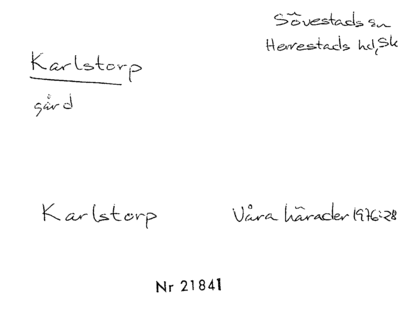 Sövestads sn
Herrestads hd, Sk
Karlstorp
gård
Karlstorp
Våra härader 1976:28
Nr 21841